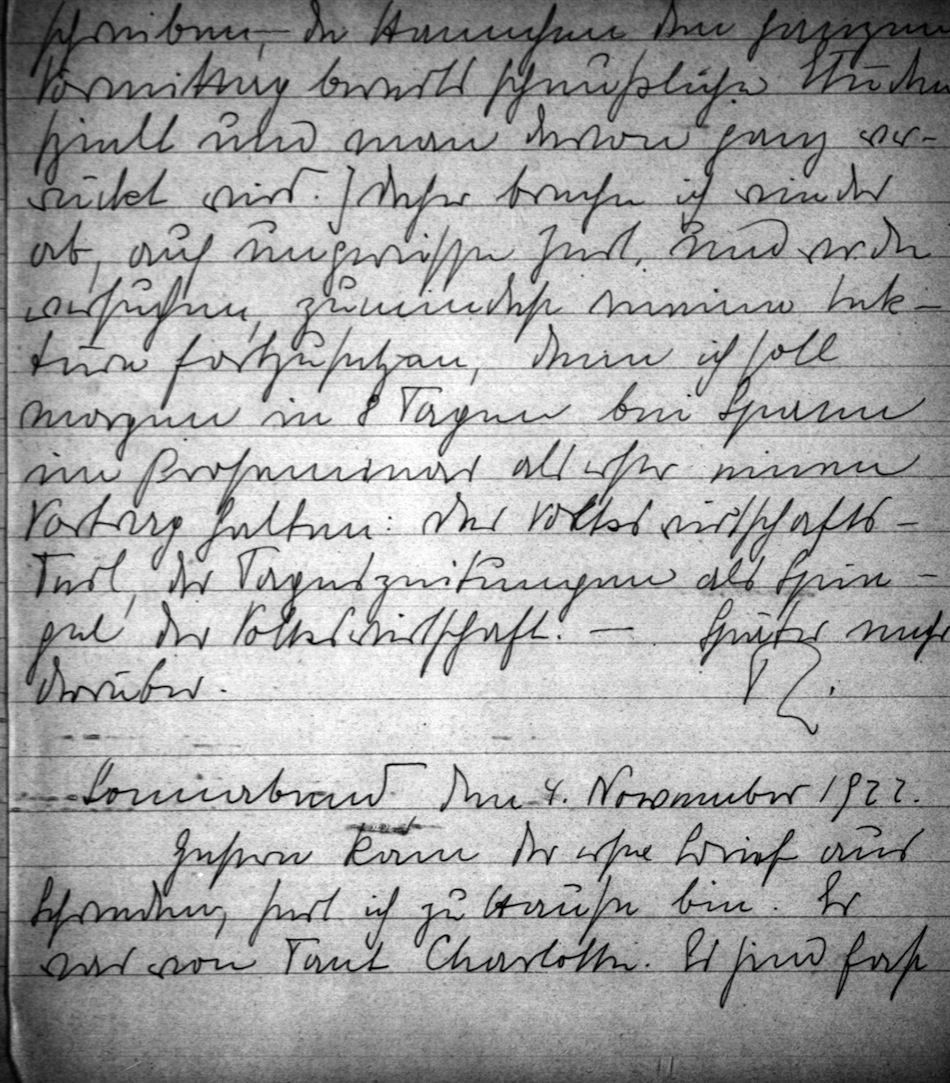 schreiben, da Hannchen den ganzen
Vormittag bereits scheußliche Stücke
spielt und man davon ganz ver-
rückt wird.) Daher breche ich wieder
ab, auf ungewisse Zeit, und werde
versuchen, zumindest meine Lek-
türe fortzusetzen, denn ich soll
morgen in 8 Tagen bei Spann
im Proseminar als erster einen
Vortrag halten: Der Volkswirtschafts-
Teil, der Tageszeitungen als Spie-
gel der Volkswirtschaft. — Später mehr
darüber.
Sonnabend den 4. November 1922.
Gestern kam der erste Brief aus
Schweden, seit ich zu Hause bin. Er
war von Tant Charlotte. Es sind fast